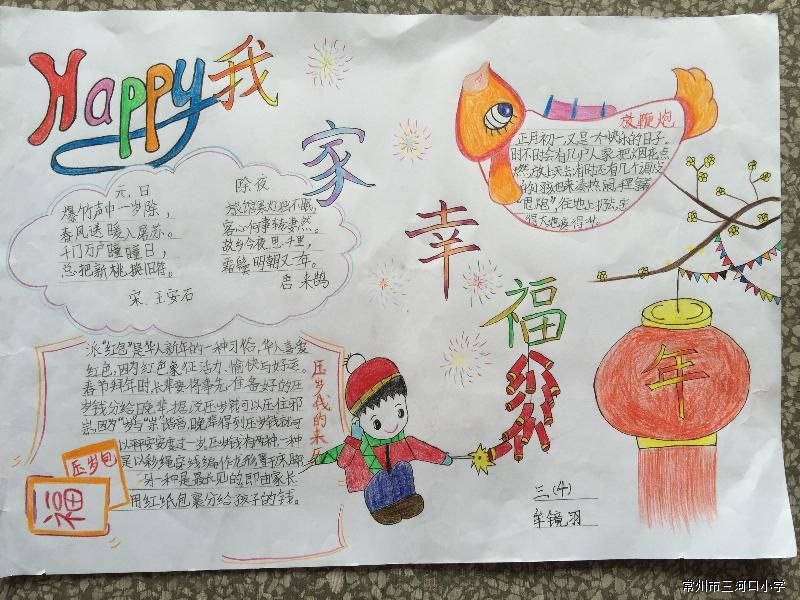 Happy 我
家
幸
福
元日
爆竹声中一岁除，
春风送暖入屠苏。
千门万户曈曈日，
总把新桃换旧符。
宋.王安石
除夜
客心何事转凄然。
故乡今夜思千里，
霜鬓明朝又一年。
放鞭炮
正月初一,又是一个快乐的日子。
时不时会有几户人家把烟花点
燃,放上天去,有时还有几个调皮
压岁钱的来历
派"红包"是华人新年的一种习俗,华人喜爱
红色,因为红色象征活力、愉快与好运。
春节拜年时,长辈要将事先准备好的压
岁钱分给晚辈,据说压岁钱可以压住邪
祟,因为"岁"与"祟"谐音,晚辈得到压岁钱就可
以平平安安度过一岁,压岁钱有两种,一种
是以彩绳穿线编作龙形,置于床脚
另一种是最常见的,即由家长
用红纸包裹分给孩子的钱。
压岁包
福
年
三(4)
牟镜羽
常州市三河口小学